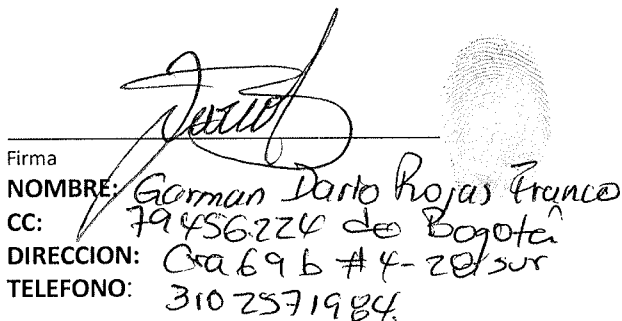 Firma
NOMBRE: German Dario Rojas Franco
CC: 79456224 de Bogotá
DIRECCION: Cra 69 b # 4-28 sur
TELEFONO: 3102571984.